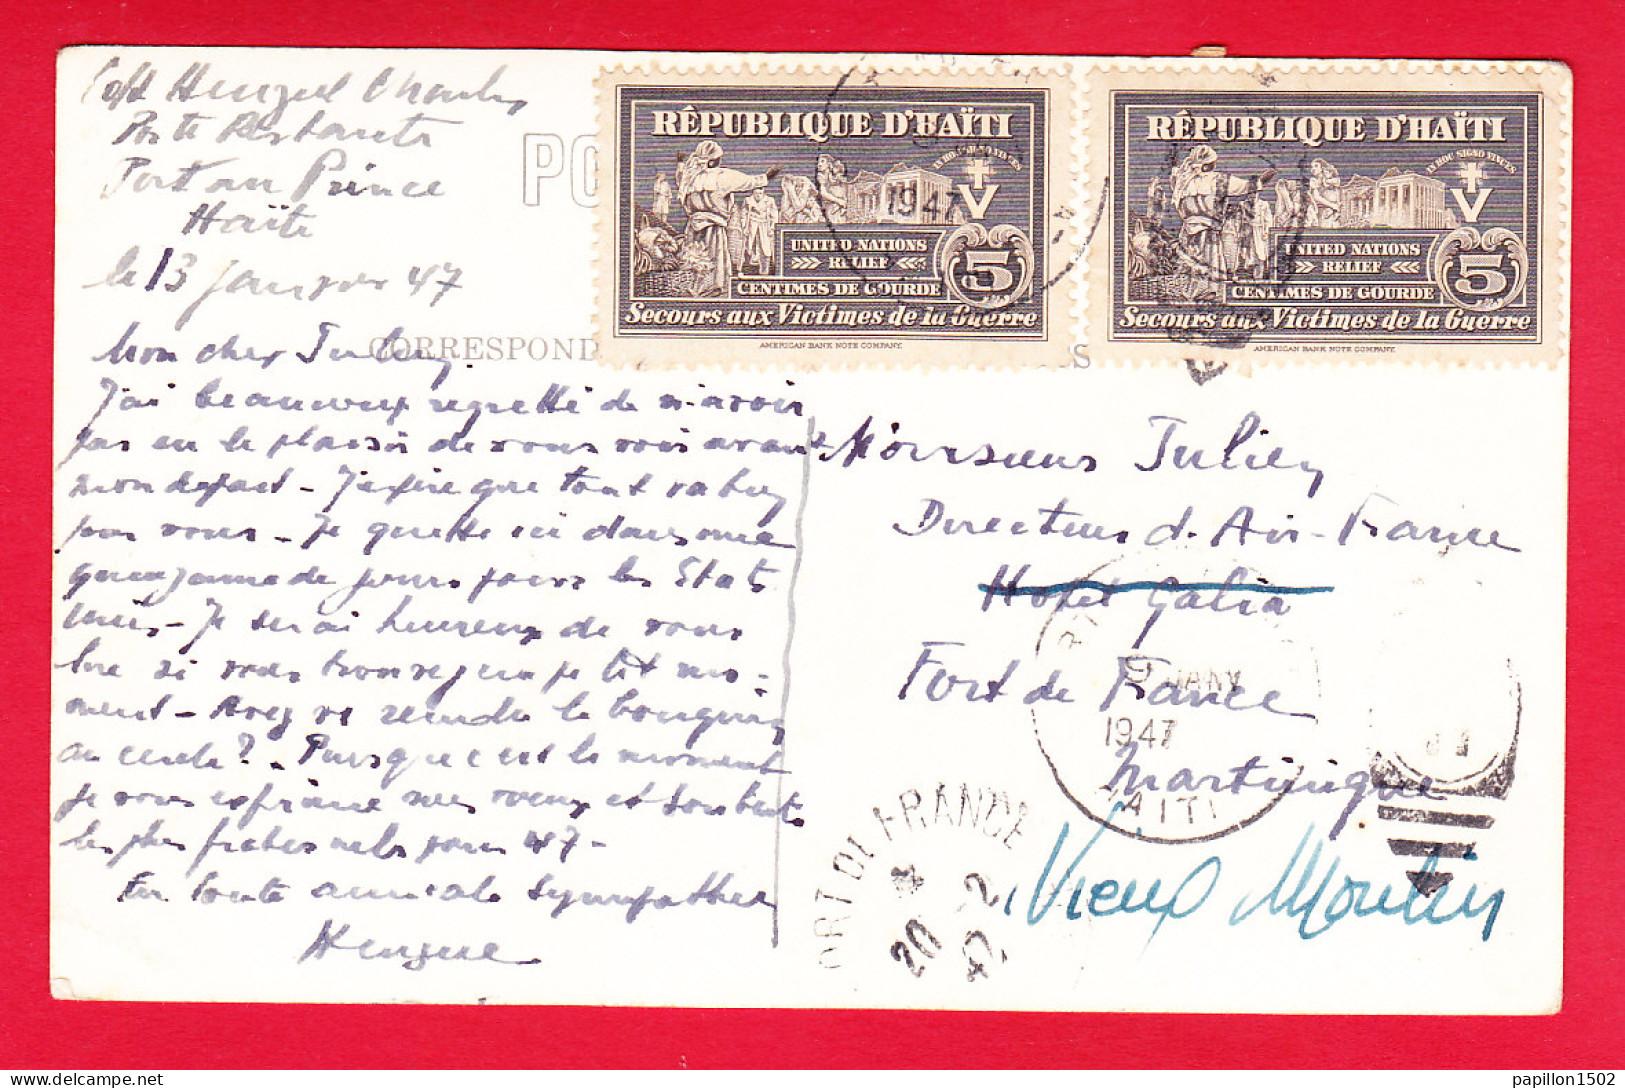 Charles
Poste Restante
Port au Prince
Haïti
le 13 Janvier 47
PO
CORRESPOND
S
Mon cher Julien
J'ai beaucoup regretté de n'avoir
pas eu le plaisir de vous voir avant
mon départ - J'espère que tout va bien
pour vous - Je quitte ici dans une
quinzaine de jours pour les Etats
Unis - Je serai heureux de vous
lire si vous trouvez un petit mo-
ment - Avez vs rendu le bouquin
au cercle? - Puisque c'est le moment
je vous exprime mes voeux et souhaits
les plus pour 47 -
En toute amicale sympathie
RÉPUBLIQUE D'HAÏTI
IN HOC SIGNO VINCES
V
UNITED NATIONS
RELIEF
5
CENTIMES DE GOURDE
Secours aux Victimes de la Guerre
AMERICAN BANK NOTE COMPANY.
1947
RÉPUBLIQUE D'HAÏTI
IN HOC SIGNO VINCES
V
UNITED NATIONS
RELIEF
5
CENTIMES DE GOURDE
Secours aux Victimes de la Guerre
AMERICAN BANK NOTE COMPANY.
Monsieur Julien
Directeur d'Air-France
Hotel Galia
Fort de France
Martinique
Vieux Moulin
JANV
1947
HAITI
FORT DE FRANCE
20 - 2
47
papillon1502